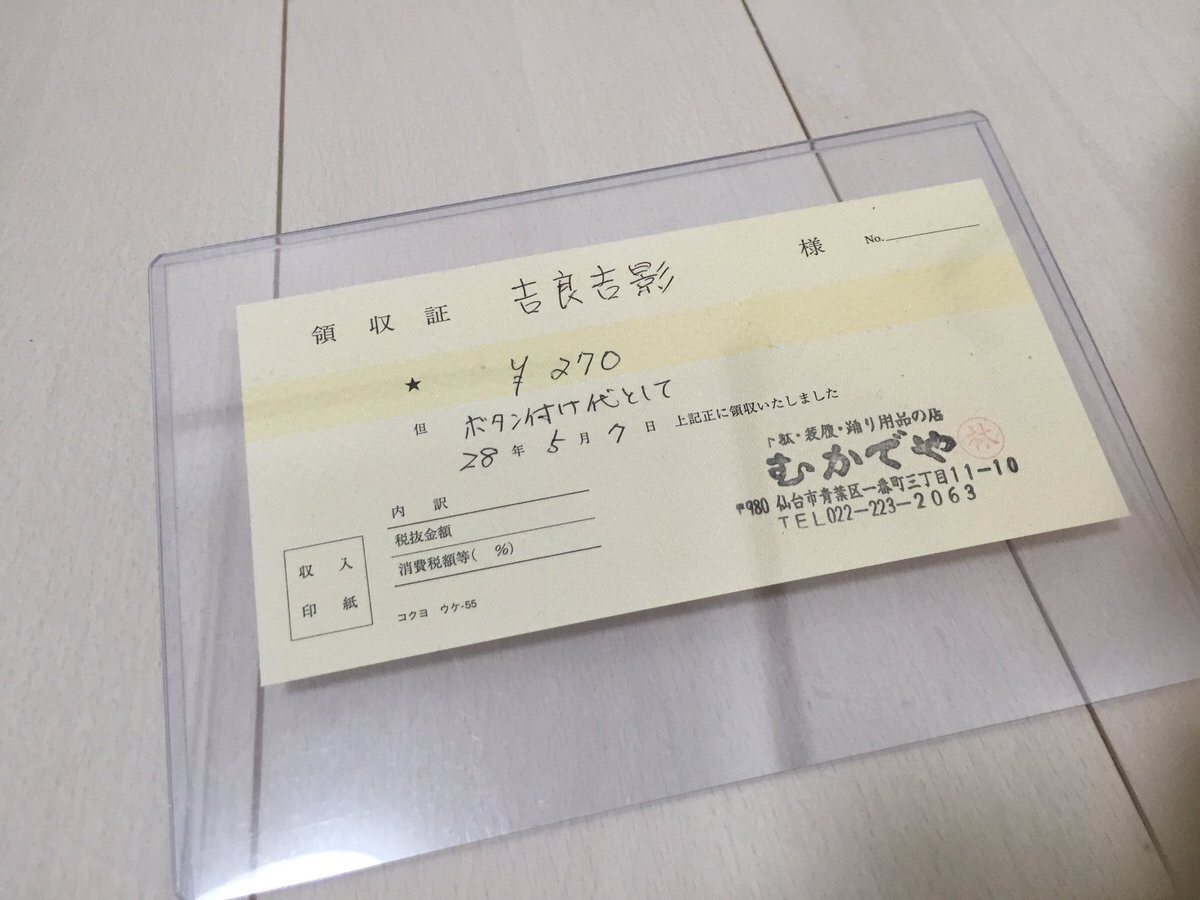 領収証 吉良吉影 様 No.
★ ¥270
但 ボタン付け代として
28年 5月 7日 上記正に領収いたしました
内訳
税抜金額
消費税額等( %)
収入
印紙
コクヨ ウケ-55
下駄・装履・踊り用品の店
むかでや 林
〒980 仙台市青葉区一番町三丁目11-10
TEL022-223-2063